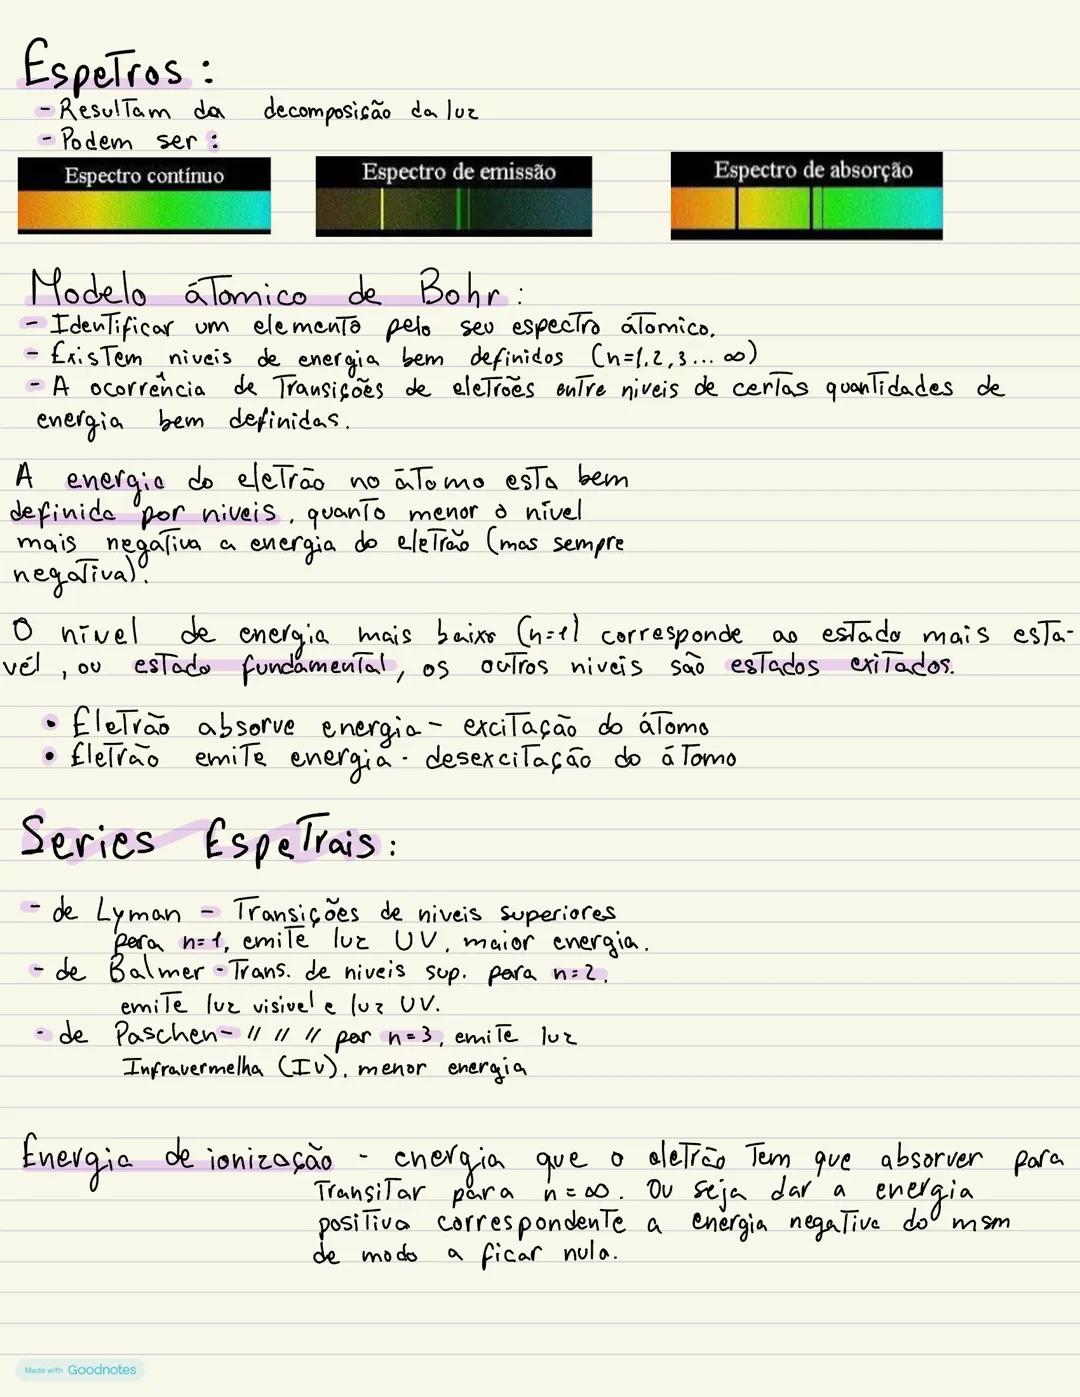 Espetros :
- Resultam da decomposição da luz
- Podem ser :
Espectro contínuo
Espectro de emissão
Espectro de absorção
Modelo átomico de Bohr :
- Identificar um elemento pelo seu espectro átomico.
- Existem niveis de energia bem definidos (n=1,2,3... ∞)
- A ocorrência de Transições de eletrões entre niveis de certas quantidades de
energia bem definidas.
A energia do eletrão no átomo esta bem
definida por niveis, quanto menor o nível
mais negativa a energia do eletrão (mas sempre
negativa).
O nível de energia mais baixo (n=1) corresponde ao estado mais esta-
vél, ou estado fundamental, os outros niveis são estados exitados.
• Eletrão absorve energia - excitação do átomo
• Eletrão emite energia - desexcitação do átomo
Series Espetrais :
- de Lyman - Transições de niveis superiores
para n=1, emite luz UV, maior energia.
- de Balmer - Trans. de niveis sup. para n=2,
emite luz visivel e luz UV.
- de Paschen - // // // par n=3, emite luz
Infravermelha (IV), menor energia
Energia de ionização - energia que o eletrão Tem que absorver para
Transitar para n=∞. Ou seja dar a energia
positiva correspondente a energia negativa do msm
de modo a ficar nula.
Made with Goodnotes